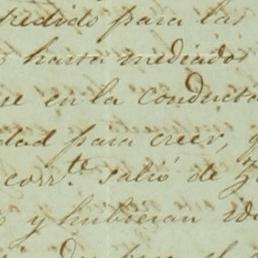 redido para las
hasta mediados
en la conducta
dad para creer,
corr.te salió de
y hubieran